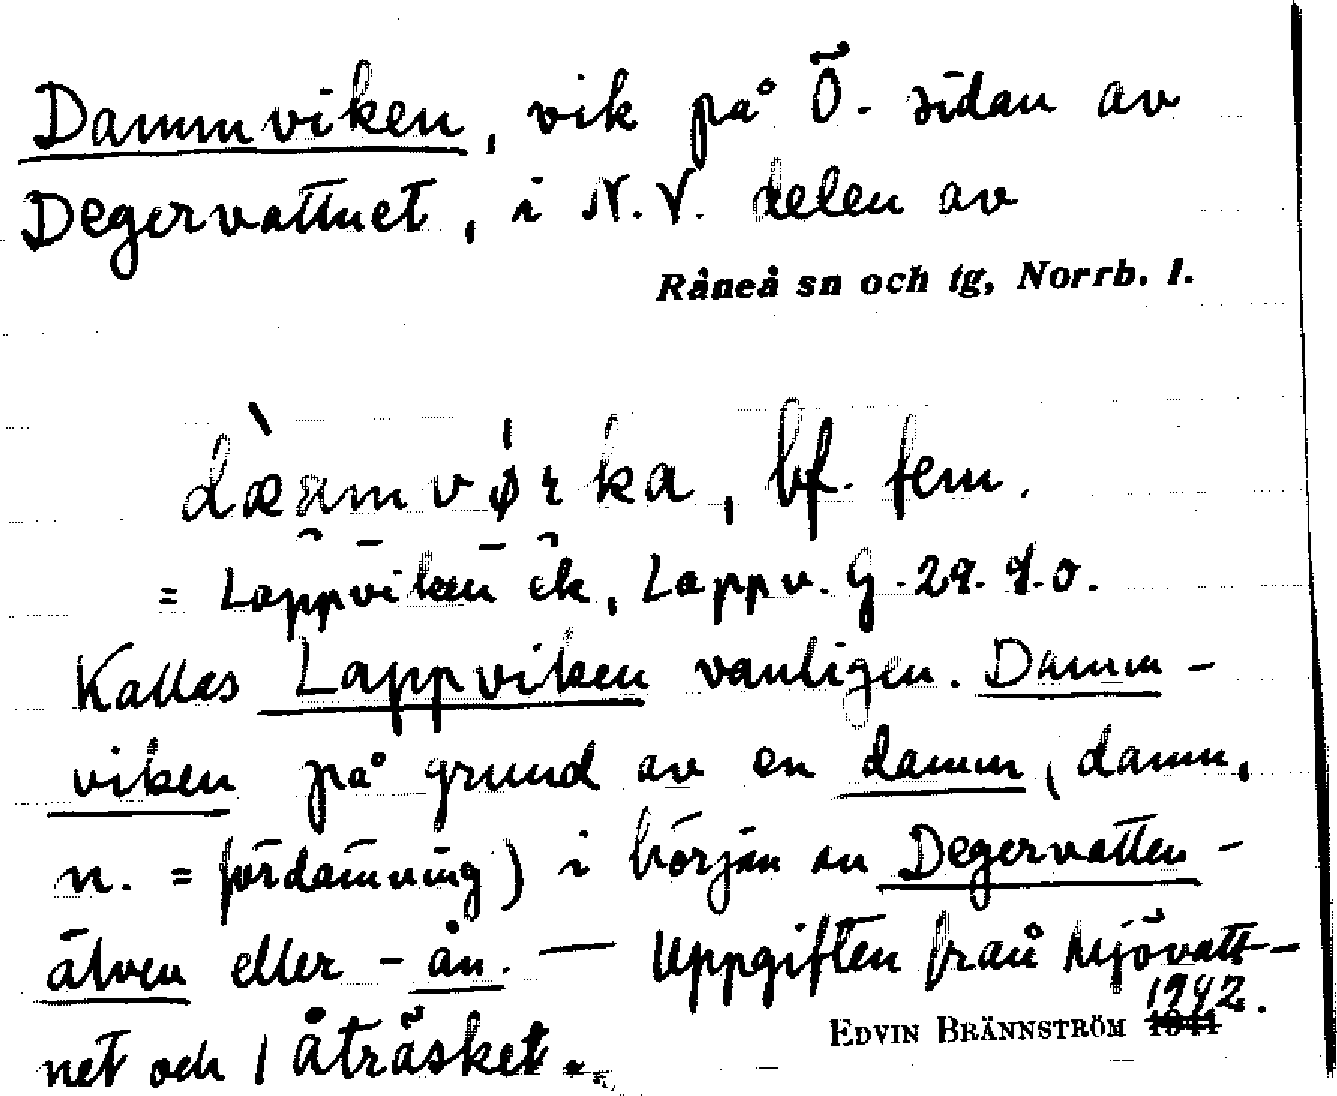 Dammviken, vik på Ö. sidan av
Degervattnet, i N.V. delen av
Råneå sn och tg, Norrb. l.
dæ̀amvø̍rka, bf. fem.
= Lappviken ek, Lappv. G.
Kallas Lappviken vanligen. Damm-
viken på grund av en damm (damm,
n. = fördämning) i början av Degervatten-
älven eller -ån. — Uppgiften från Mjövatt-
net och Åträsket.
EDVIN BRÄNNSTRÖM 1941 1942.